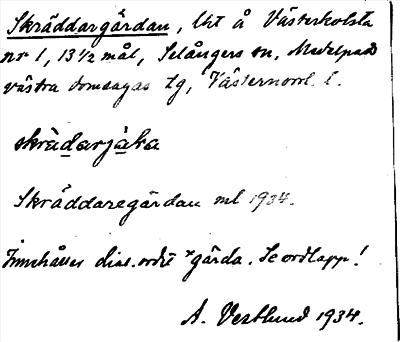 Skräddargårdan, lht å Västerkolsta
nr 1, 13 1/2 mål, Selångers sn, Medelpads
västra domsagas tg, Västernorrl. l.
skrädarjáka
Skräddaregärdan ml 1934.
Innehåller dial. ordet *gärda. Se ordlapp!
A. Vestlund 1934.